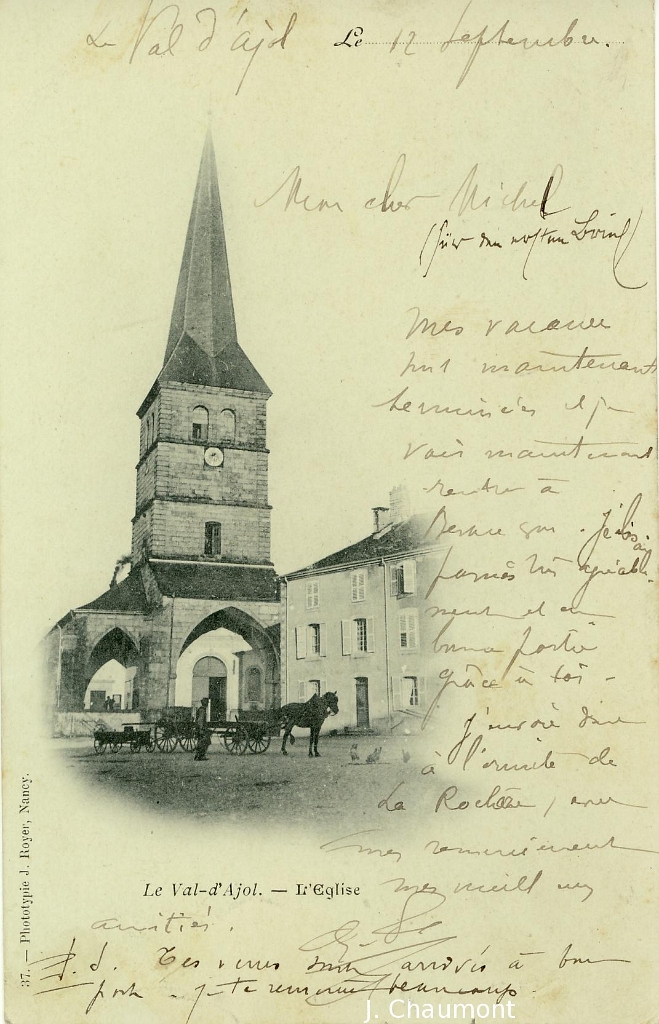 Le Val d'ajol Le 12 Septembre.
Mon cher Michel
(für den
Mes vacances
sont maintenant
terminées et je
vais maintenant
rentrer à
. Je les ai
passées très agréable-
ment et en
bonne
grâce à toi -
J'envoie donc
à l'ermite de
La , avec
mes remerciements
mes meilleures
amitiés.
P. S. Tes sont arrivés à bon
port - je te remercie beaucoup.
Le Val-d'Ajol. — L'Eglise
37. — Phototypie J. Royer, Nancy.
J. Chaumont